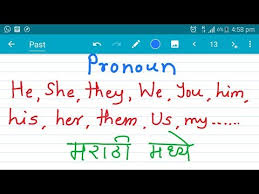 4:58 pm
Past 13
Pronoun
He, She, they, We, You, him,
his, her, them, Us, my......
मराठी मध्ये